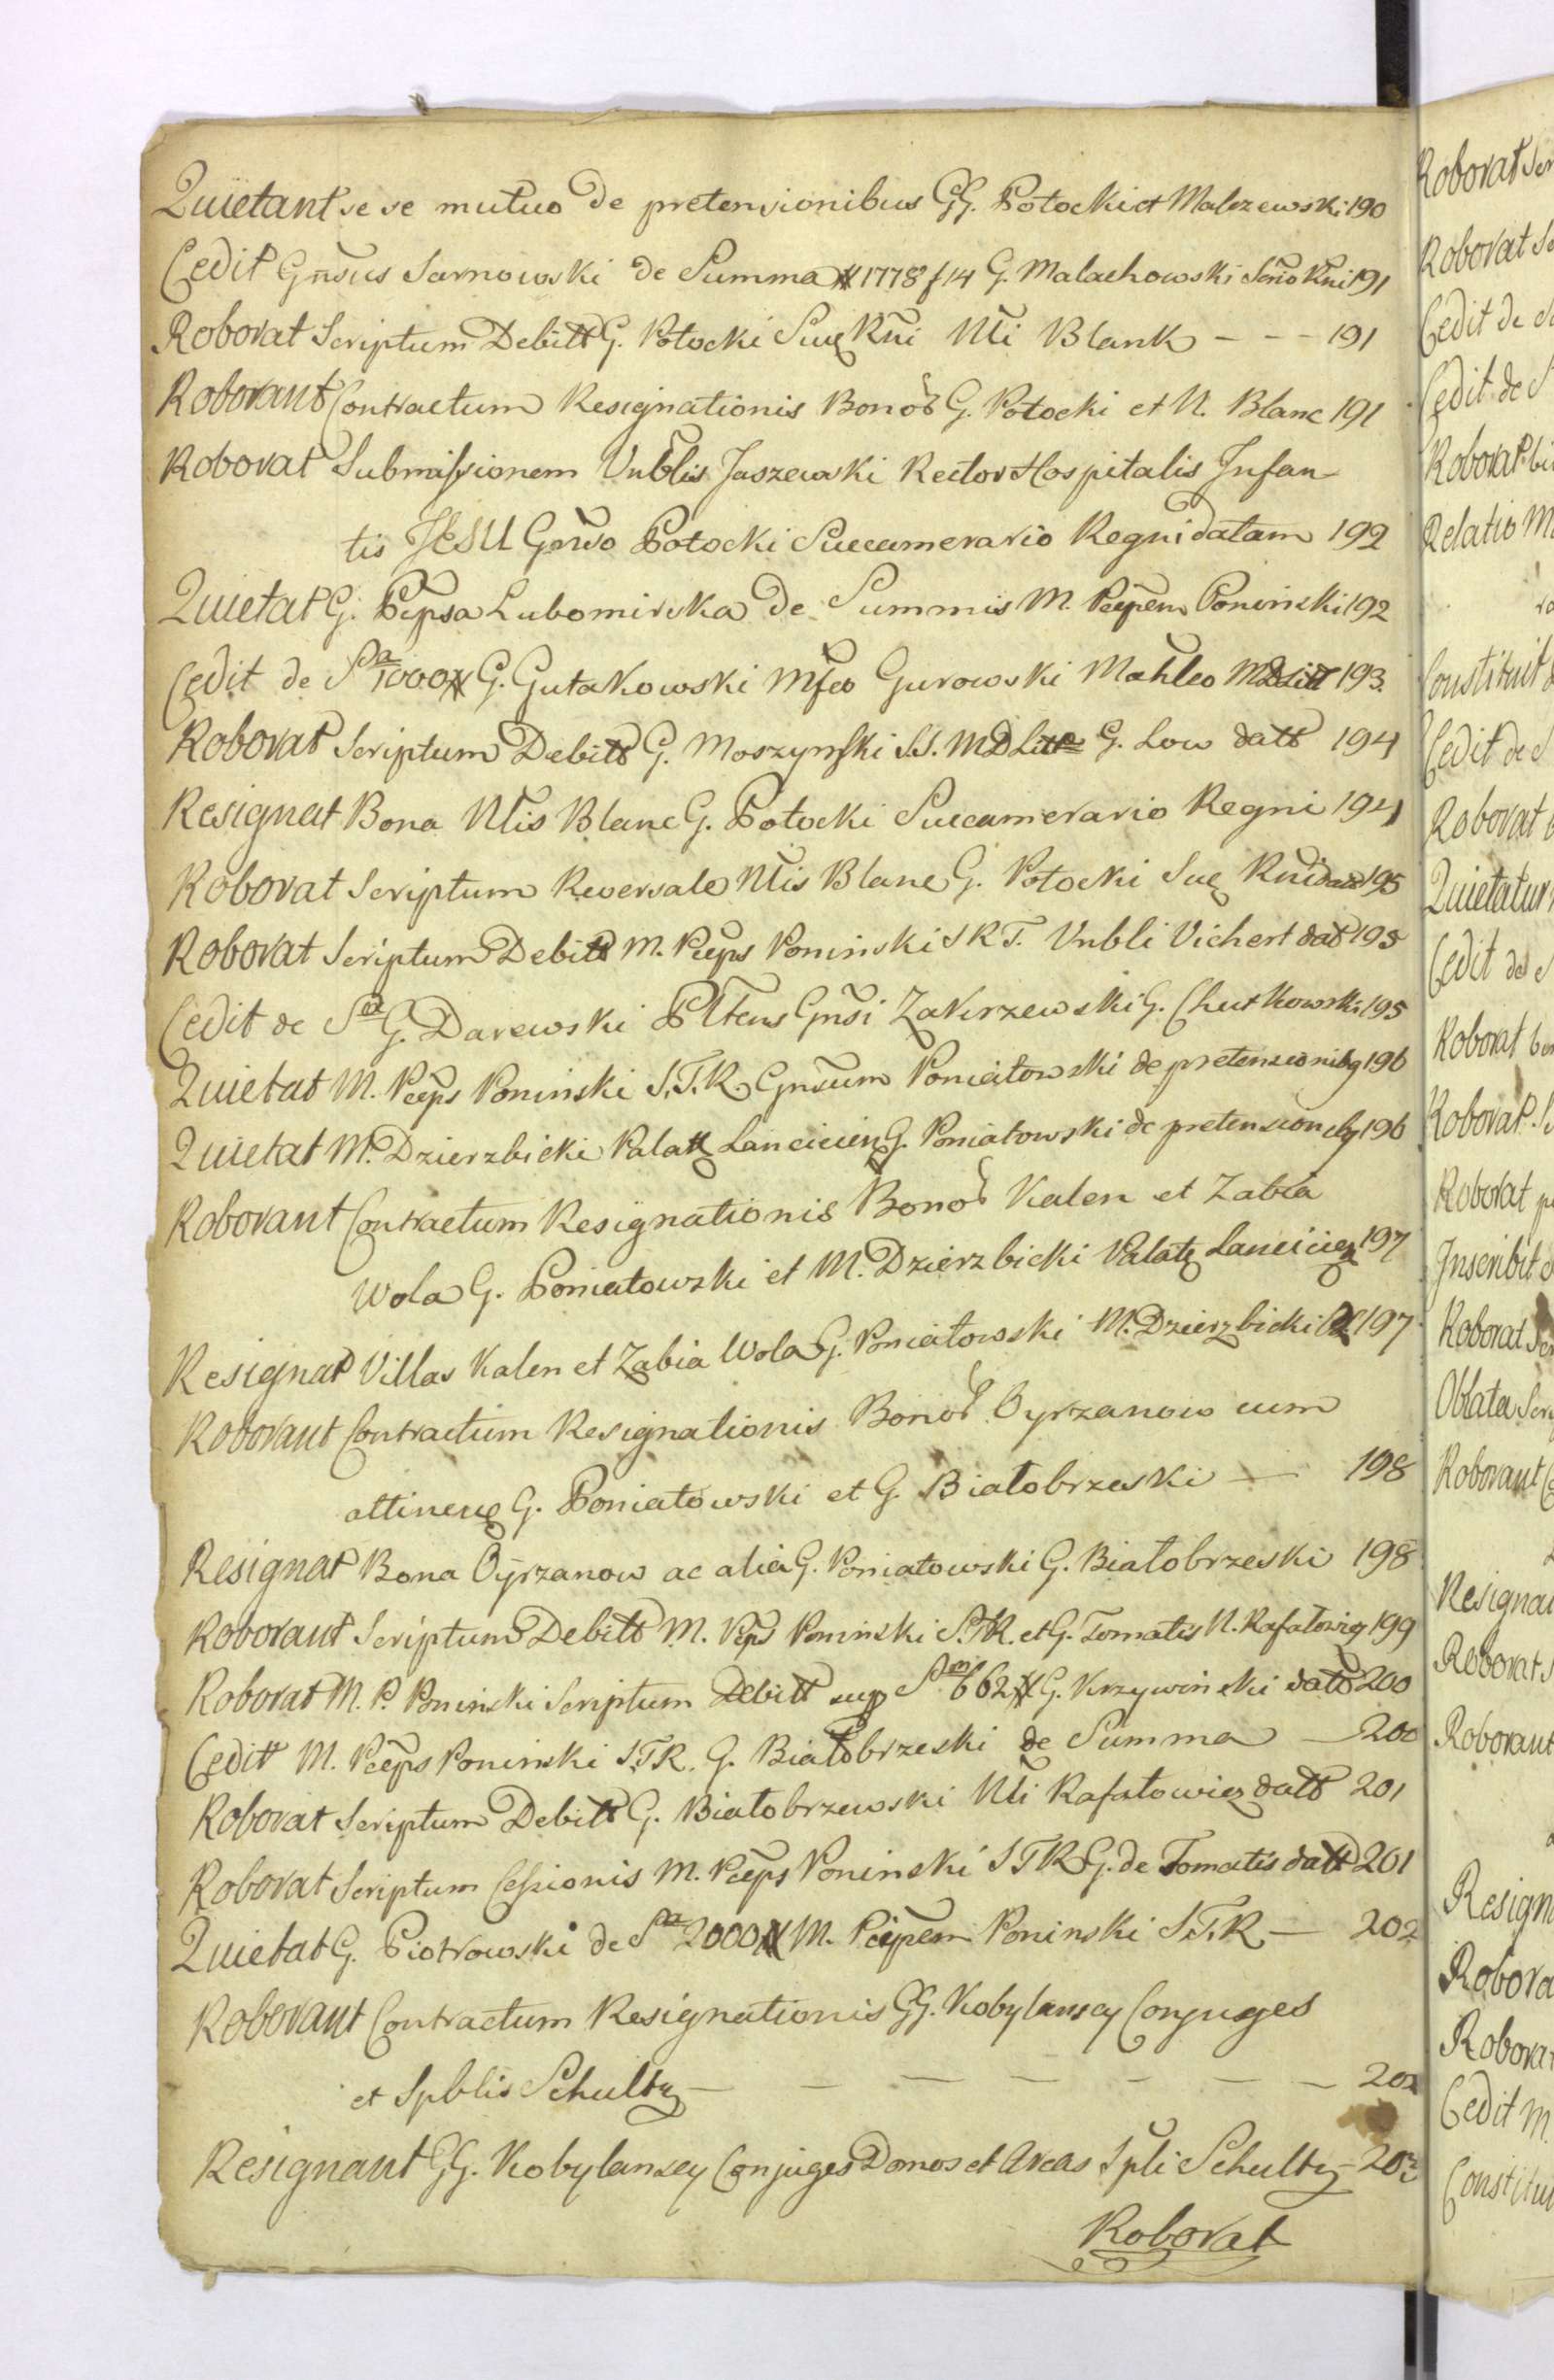 Quietant se se mutuo de pretensionibus GG. Potocki et Malczewski 190
Cedit Gnsus Sarnowski de Summa # 1778 f 14 G. Malachowski Rni 191
Roborat Scriptum Debitt G. Potocki Suc Rni Nli Blank - - - 191
Roborant Contractum Resignationis Bonor G. Potocki et N. Blanc 191
Roborat Submissionem Vnblis Jaszewski Rector Hospitalis Infan
tis JESU Gnso Potocki Succamerario Regni datam 192
Quietat G. Ppsa Lubomirska de Summis M. Pcpem Poninski 192
Cedit de Sa 1000# G. Gutakowski Mfco Gurowski Mahleo MDLitt 193
Roborat Scriptum Debitt G. Moszynski S.S. MDLitt G. Low datt 194
Resignat Bona Nlis Blanc G. Potocki Succamerario Regni 194
Roborat Scriptum Reversale Nlis Blanc G. Potocki Suc Rni dat 195
Roborat Scriptum Debitt M. Pceps Poninski S R T. Vnbli Vichert dat 195
Cedit de Sa G. Darewski Gnsi Zakrzewski G. Chutkowski 195
Quietat M. Pceps Poninski S.T.R. Gnsum Poniatowski de pretensionibq 196
Quietat M. Dzierzbicki Palatt Lancicien G. Poniatowski de pretensionebq 196
Roborant Contractum Resignationis Bonor Kalen et Zabia
Wola G. Poniatowski et M. Dzierzbicki Palat Lancicien 197
Resignat Villas Kalen et Zabia Wola G. Poniatowski M. Dzierzbicki 197
Roborant Contractum Resignationis Bonor Oyrzanow cum
attinen G. Poniatowski et G. Białobrzeski — 198
Resignat Bona Oyrzanow ac alia G. Poniatowski G. Białobrzeski 198
Roborant Scriptum Debitt M. Pps Poninski S.T.R. et G. Tomatis N. Rafałowicz 199
Roborat M. P. Poninski Scriptum Debitt sup Sm 662# G. Krzywinski datt 200
Cedit M. Pceps Poninski S.T.R. G. Białobrzeski de Summa — 200
Roborat Scriptum Debitt G. Białobrzewski Nli Rafałowicz datt 201
Roborat Scriptum Cessionis M. Pceps Poninski S T R G. de Tomatis datt 201
Quietat G. Piotrowski de Sa 2000# M. Pcipem Poninski S.T.R — 202
Roborant Contractum Resignationis GG. Kobylanscy Conjuges
et Spblis Schultz — — — — — — — 202
Resignant GG. Kobylanscy Conjuges Domos et Areas Spli Schultz — 203
Roborat